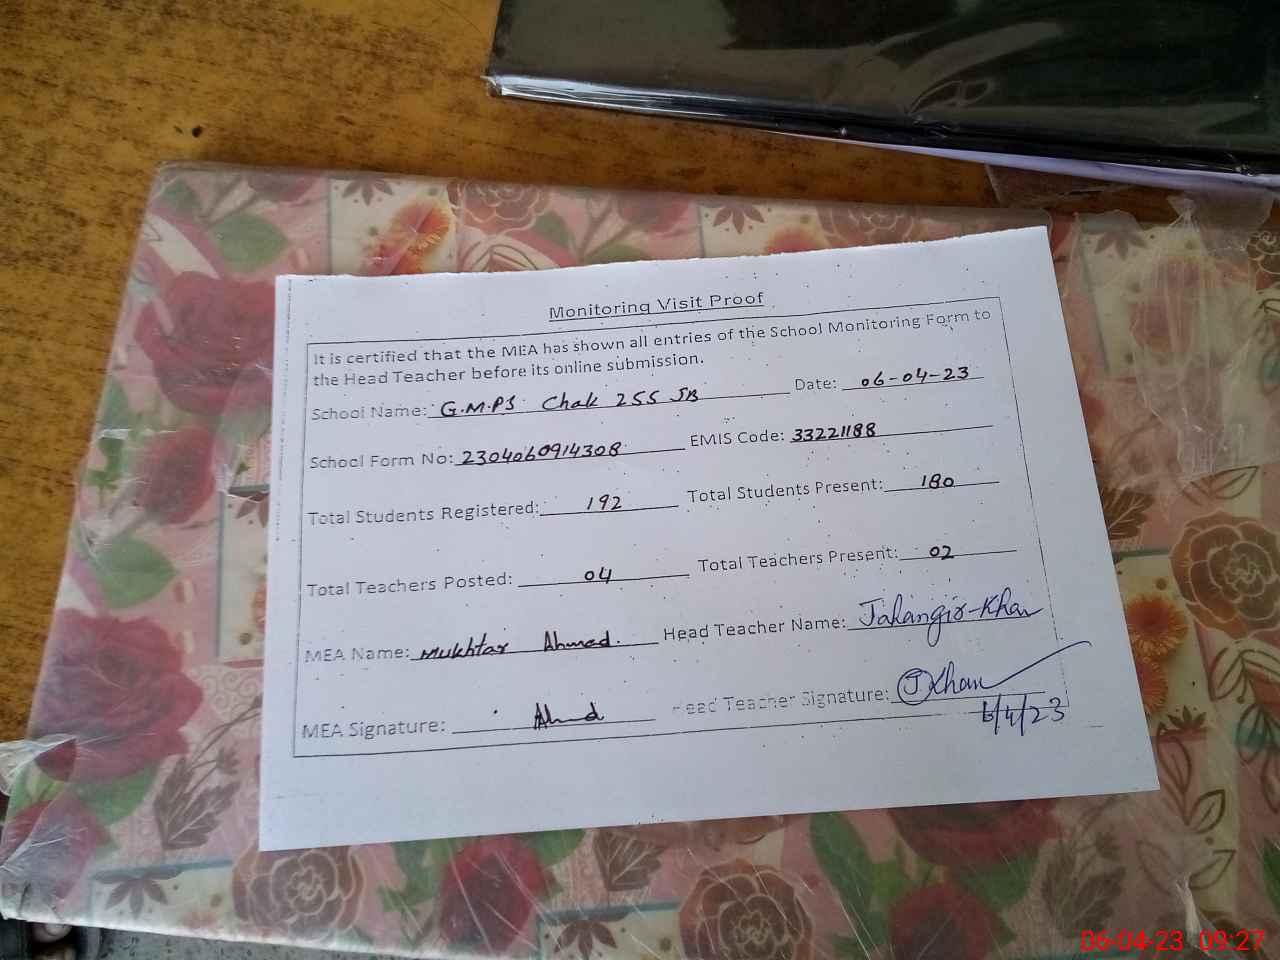 Monitoring Visit Proof
It is certified that the MEA has shown all entries of the School Monitoring Form to
the Head Teacher before its online submission.
School Name: G.M.P.S Chak 255 JB Date: 06-04-23
School Form No: 2304060914308 EMIS Code: 33221188
Total Students Registered: 192 Total Students Present: 180
Total Teachers Posted: 04 Total Teachers Present: 02
MEA Name: Mukhtar Ahmad. Head Teacher Name: Jahangir-Khan
MEA Signature: Ahmd Head Teacher Signature: J Khan
6/4/23
06-04-23 09:27